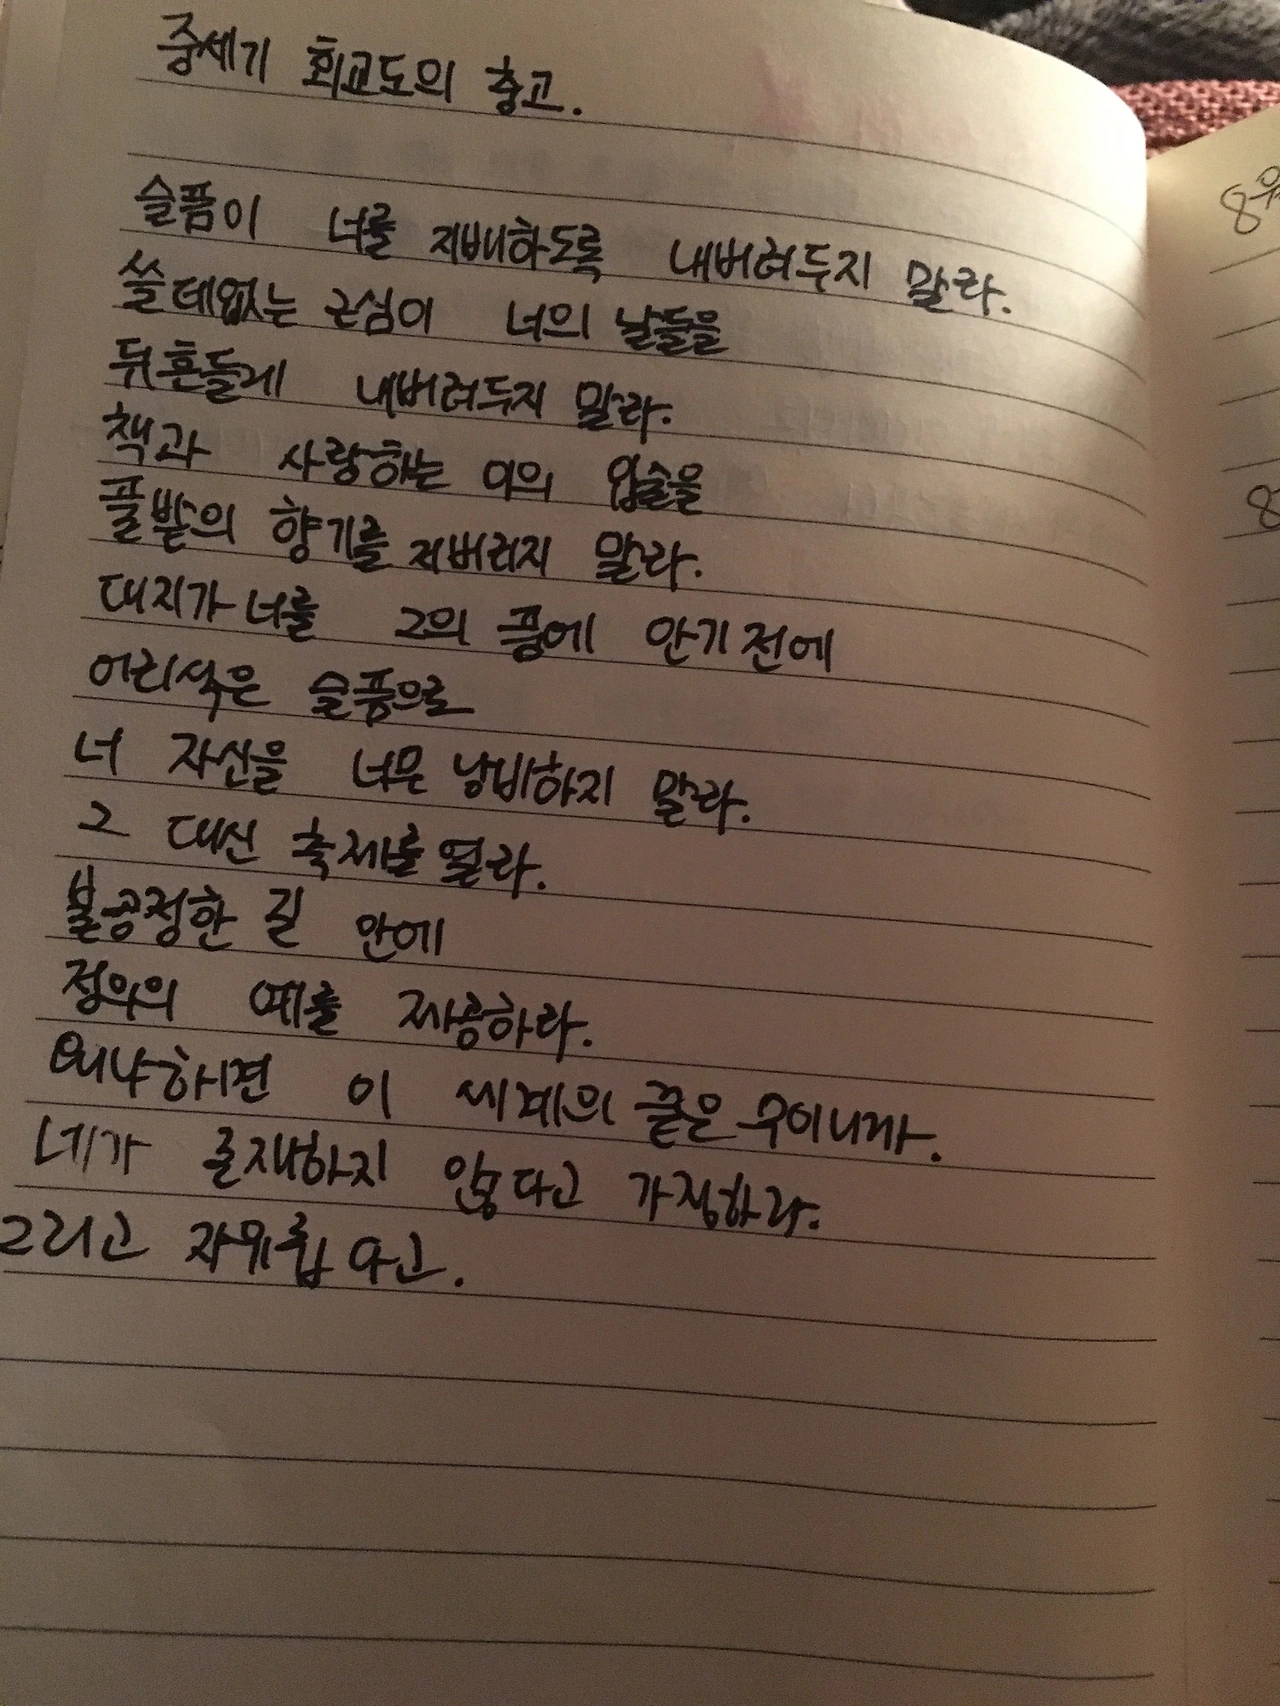 중세기 회교도의 충고.
슬픔이 너를 지배하도록 내버려두지 말라.
쓸데없는 근심이 너의 날들을
뒤흔들게 내버려두지 말라.
책과 사랑하는 이의 입술을
풀밭의 향기를 저버리지 말라.
대지가 너를 그의 품에 안기 전에
어리석은 슬픔으로
너 자신을 너무 낭비하지 말라.
그 대신 축제를 열라.
불공정한 길 안에
정의의 예를 제공하라.
왜냐하면 이 세계의 끝은 무이니까.
네가 존재하지 않는다고 가정하라.
그리고 자유롭다고.
8
8